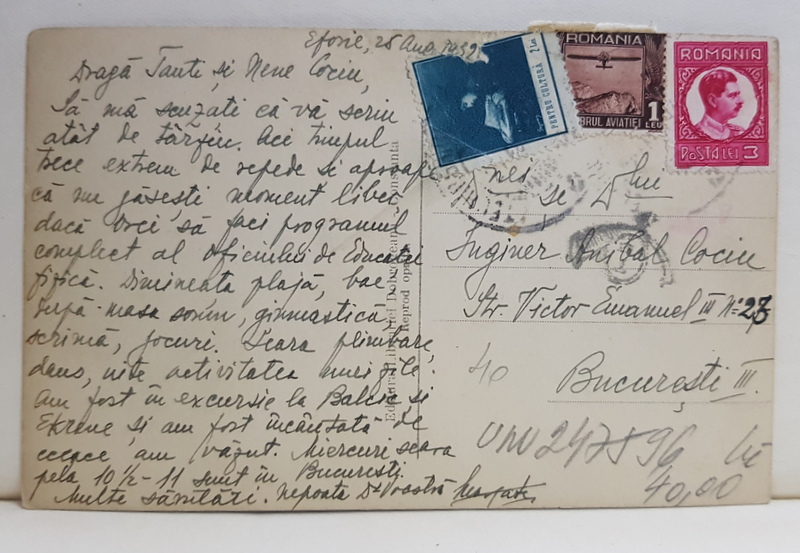 Eforie, 25 Aug. 1932
Dragă Tanti și Nene Cociu,
Să mă scuzați că vă scriu
atât de târziu. Aci timpul
trece extrem de repede si aproape
că nu găsești moment liber,
dacă vrei să faci programul
complect al Oficiului de Educație
fizică. Dimineata plajă, bae
după-masa somn, gimnastică,
scrimă, jocuri. Seara plimbare,
dans, uite activitatea unei zile.
Am fost in excursie la Balcic si
Ekrene și am fost încântată de
ceeace am văzut. Miercuri seara
pela 10½-11 sunt in București.
Multe sănătări. Nepoata Dvoastră
Constanta
Reprod
PENTRU CULTURĂ 2 Lei
ROMANIA
1 LEU
BRUL AVIATIEI
ROMANIA
POSTA LEI 3
nei
se Dlui
Inginer Anibal Cociu
Str. Victor Emanuel III No 27
București III.
40
UNU 247896
lei
40,00